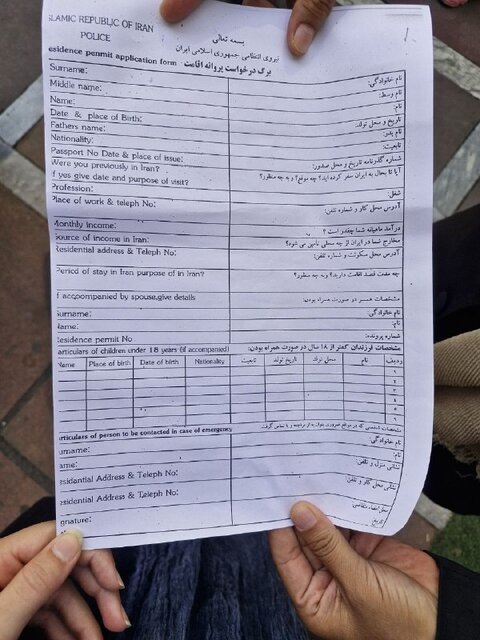 SLAMIC REPUBLIC OF IRAN
POLICE
بسمه تعالی
نیروی انتظامی جمهوری اسلامی ایران
esidence permit application form
برگ درخواست پروانه اقامت
Surname:
نام خانوادگی:
Middle name:
نام وسط:
Name:
نام:
Date & place of Birth:
تاریخ و محل تولد:
Fathers name:
نام پدر:
Nationality:
تابعیت:
Passport No Date & place of issue:
شماره گذرنامه تاریخ و محل صدور:
Were you previously in Iran?
آیا تا بحال به ایران سفر کرده اید؟ چه موقع؟ و به چه منظور؟
f yes give date and purpose of visit?
Profession:
شغل:
Place of work & teleph No:
آدرس محل کار و شماره تلفن:
Monthly income:
درآمد ماهیانه شما چقدر است ؟
Source of income in Iran:
مخارج شما در ایران از چه محلی تأمین می شود؟
Residential address & Teleph No:
آدرس محل سکونت و شماره تلفن:
Period of stay in Iran purpose of in Iran?
چه مدت قصد اقامت دارید؟ وبه چه منظور؟
f accpomponied by spouse,give details
مشخصات همسر در صورت همراه بودن:
Surname:
نام خانوادگی:
Name:
نام:
Residence permit No
شماره پرونده:
articulars of children under 18 years (if accompanied)
مشخصات فرزندان کمتر از ۱۸ سال در صورت همراه بودن:
Name Place of birth Date of birth Nationality تابعیت تاریخ تولد محل تولد نام ردیف
۱
۲
۳
۴
۵
۶
articulars of person to be contacted in case of emergency
مشخصات شخصی که در مواقع ضروری بتوان به او مراجعه و یا تماس گرفت.
urname:
نام خانوادگی:
ame:
نام:
esidential Address & Teleph No:
نشانی منزل و تلفن:
esidential Address & Teleph No:
نشانی محل کار و تلفن:
gnature:
محل امضاء متقاضی:
تاریخ: